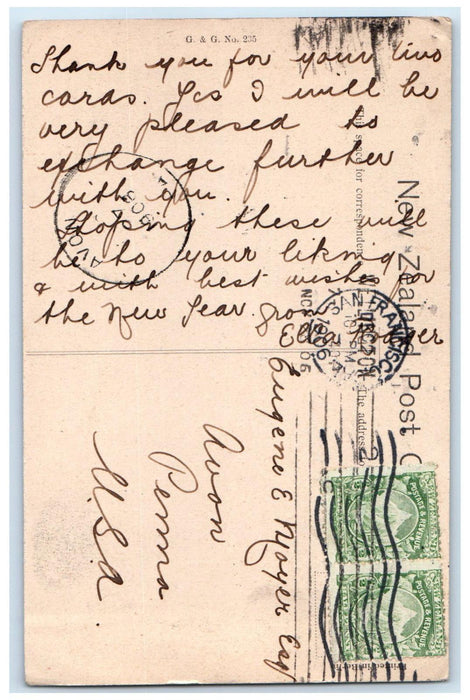 G. & G. No. 235
Thank you for your two
cards. Yes I will be
very pleased to
exchange further
with you.
Hoping these will
be to your liking
& with best wishes for
the New Year from
Ella
Eugene E Moyer Esq
Avon
Penna
U.S.A.
New Zealand Post C
This space for correspondence
The address
Printed in
AVON
SAN FRANCISCO
1906
2
POSTAGE & REVENUE
POSTAGE & REVENUE